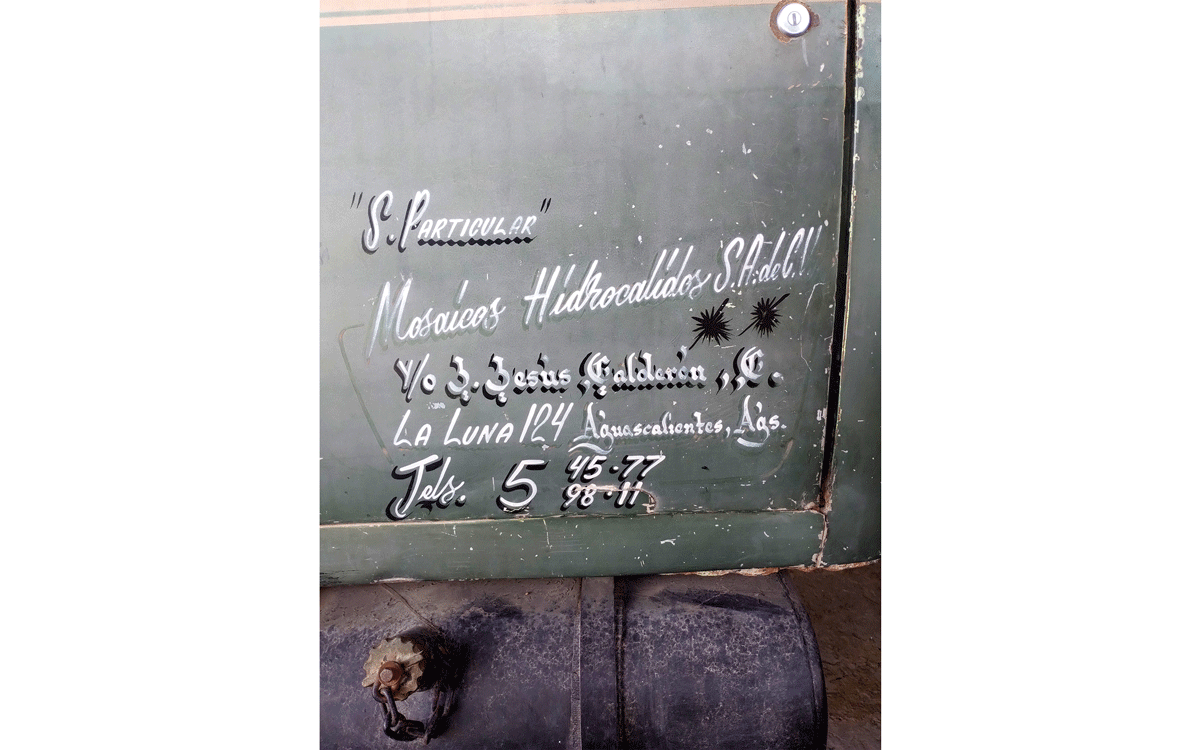 "S. PARTICULAR"
Mosaicos Hidrocalidos S.A. de C.V.
Y/o J. Jesús Calderón, C.
LA LUNA 124 Aguascalientes, Ags.
Tels. 5 45·77
98·11